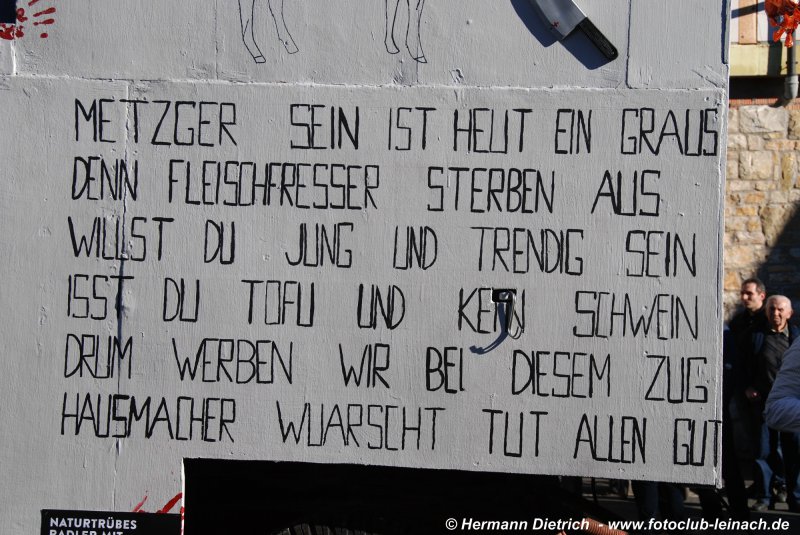 METZGER SEIN IST HEUT EIN GRAUS
DENN FLEISCHFRESSER STERBEN AUS
WILLST DU JUNG UND TRENDIG SEIN
ISST DU TOFU UND KEIN SCHWEIN
DRUM WERBEN WIR BEI DIESEM ZUG
HAUSMACHER WUARSCHT TUT ALLEN GUT
NATURTRÜBES
RADLER MIT
© Hermann Dietrich - www.fotoclub-leinach.de